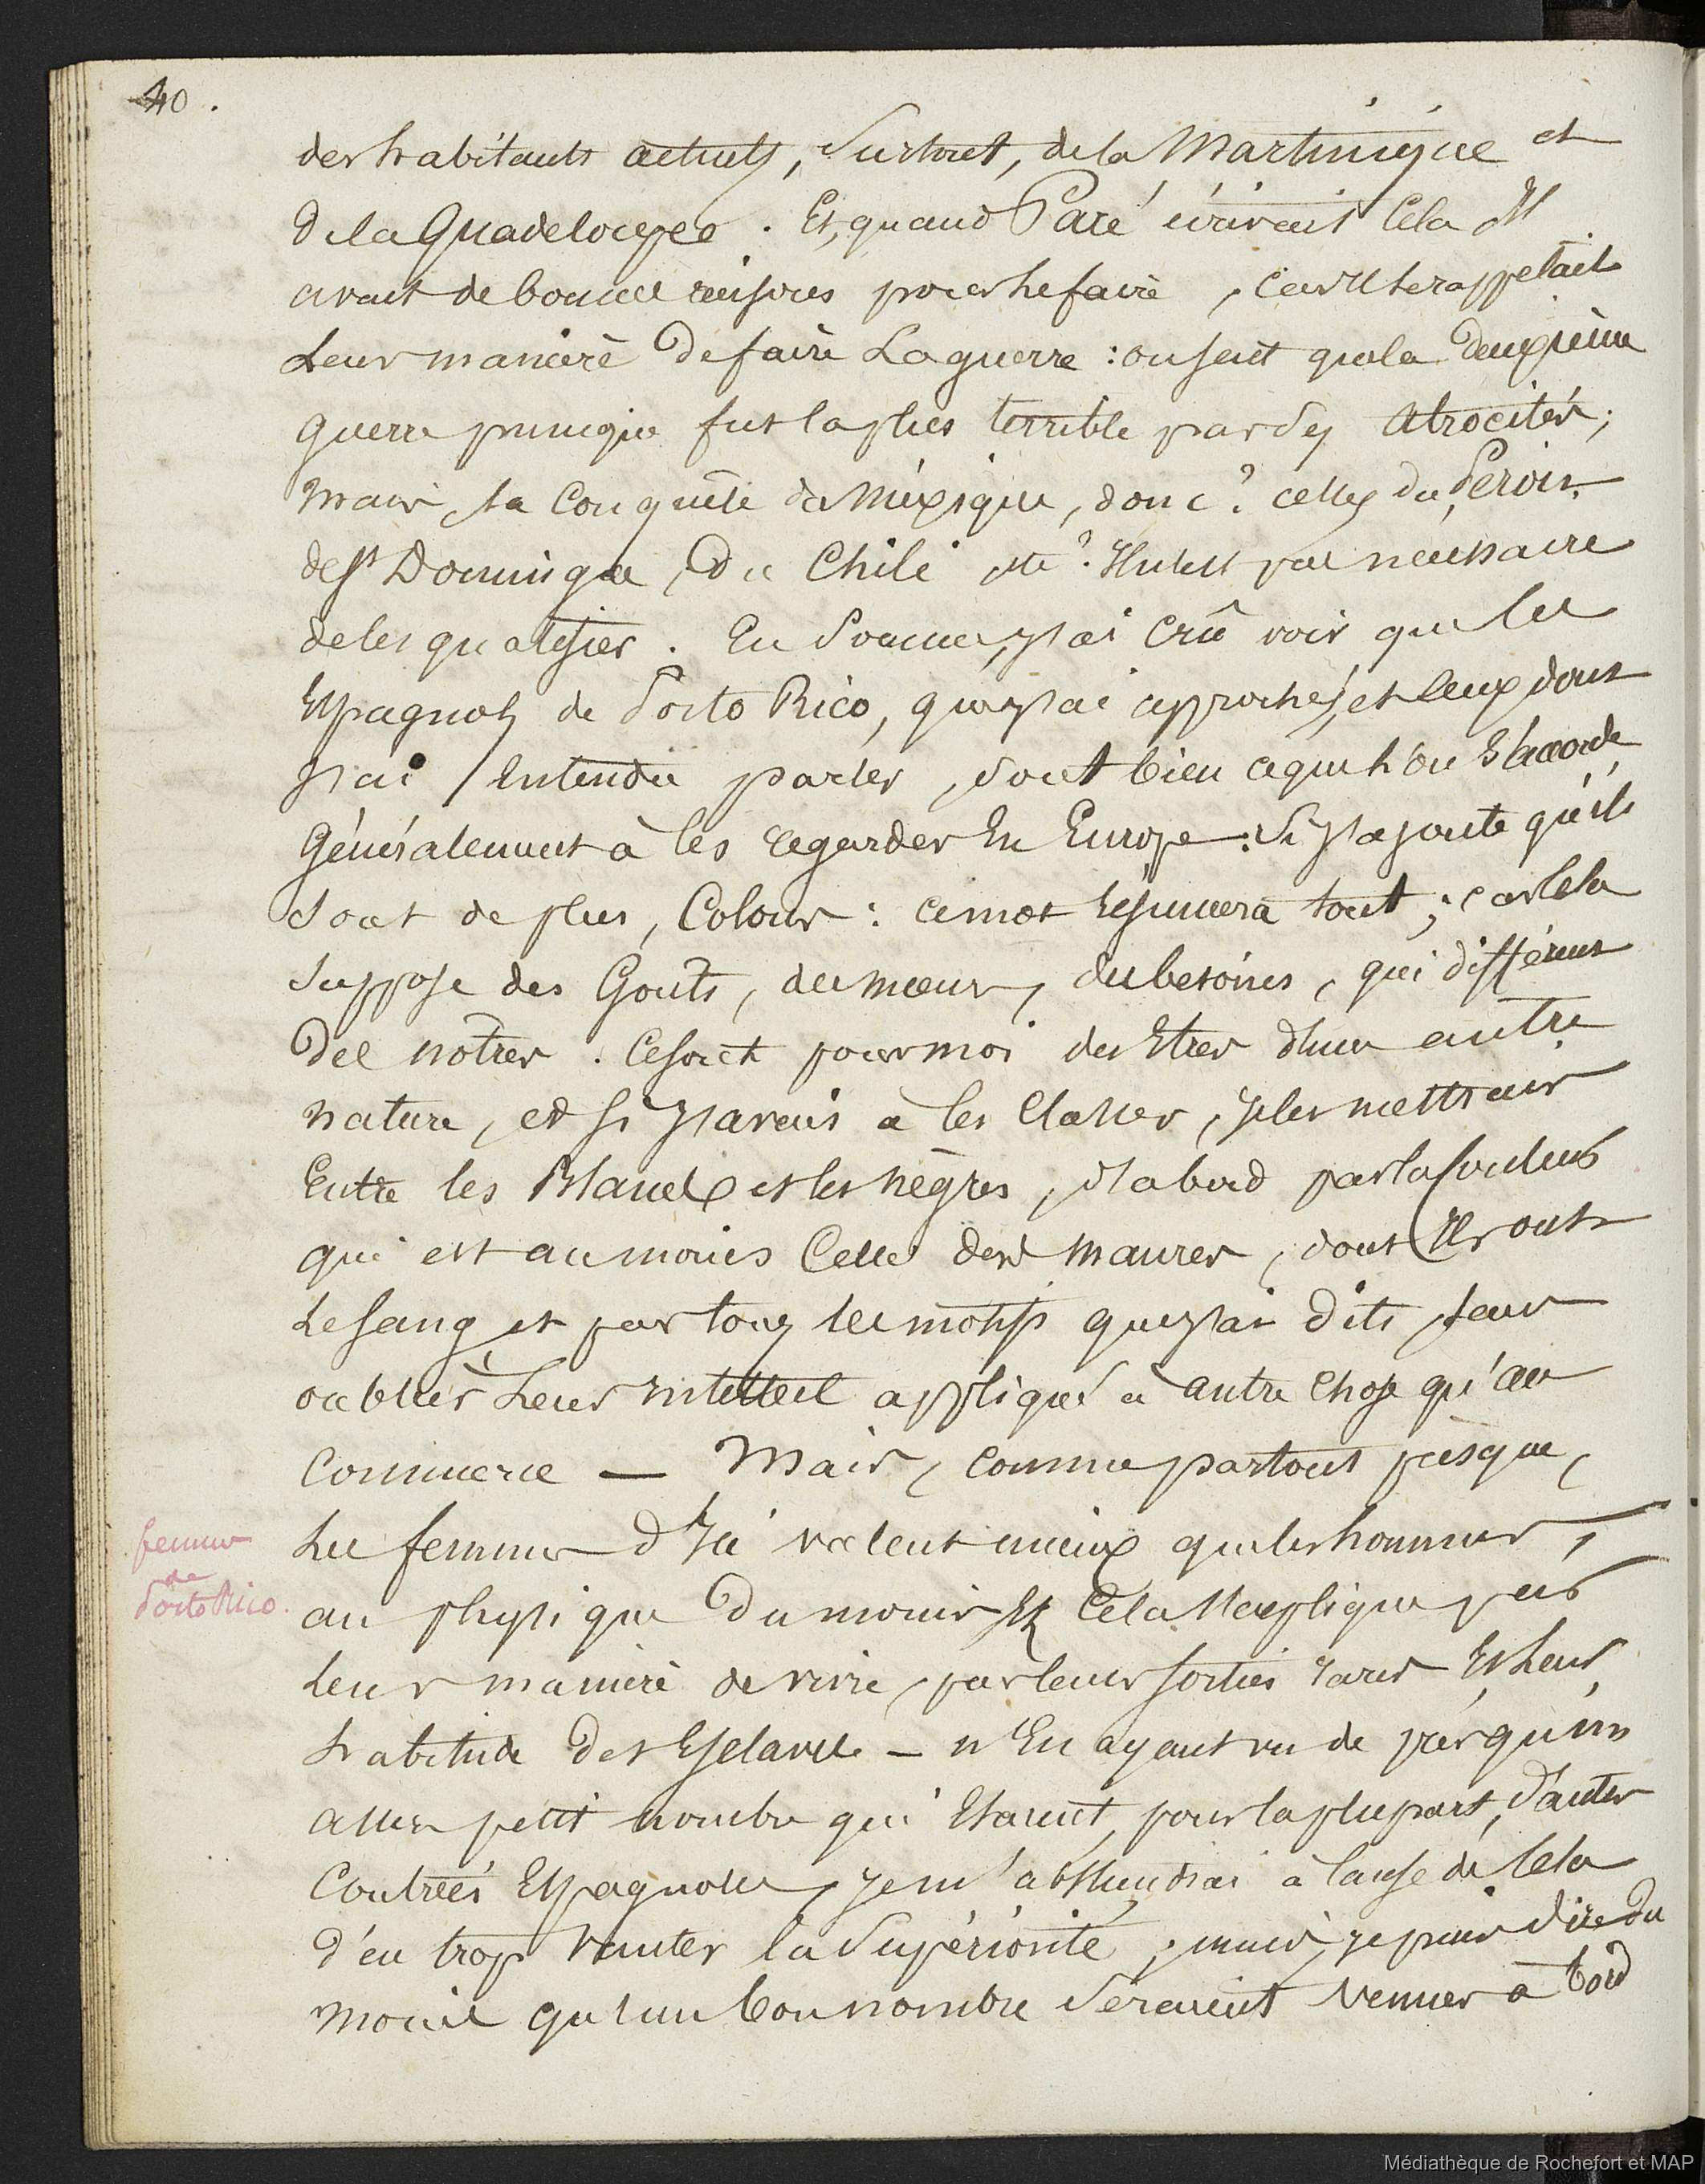 40.
des habitants actuels, Surtout, de la Martinique et
de la Guadeloupee. Et, quand Paré écrivait Cela Il
avait de bonnes raisons pour le faire, car il se rappelait
Leur manière de faire La guerre : on sait que la deuxième
guerre punique fut la plus terrible par ses atrocités;
mais, la Conquête du Méxique, donc? celles du Pérou,
de St Domingue, Du Chili etc? Il n'est pas nécessaire
de les qualifier. En Somme, j'ai crû voir que les
Espagnols de Porto Rico, que j'ai approchés, et Ceux dont
j'ai Entendu parler, sont bien ce que l'on S'accorde
Généralement à les regarder En Europe : Si j'ajoute qu'ils
Sont de plus, Colons : ce mot résumera tout; car Cela
Suppose des Goûts, des mœurs, des besoins, qui diffèrent
Des nôtres. Ce sont pour moi des Etres d'une autre
nature, et si j'avais à les Classer, je les mettrais
Entre les Blancs et les nègres, d'abord par la Couleur
qui est au moins Celle des Maures, dont Ils ont
Le Sang et par tous les motifs que j'ai dits, sans
oublier Leur intellect appliqué à autre Chose qu'au
Commerce — Mais, comme partout presque,
Les femmes d'Ici valent mieux que les hommes,
femmes
de
Porto Rico.
au physique Du moins Et Cela S'explique par
Leur manière de vivre, par leurs sorties rares Et Leur
habitude des Esclaves — n'En ayant vu de près qu'un
assez petit nombre qui Etaient, pour la plupart, d'autres
Contrées Espagnoles, je m'abstiendrai à Cause de Cela
d'en trop vanter la Supériorité; mais, je puis dire Du
moins qu'un bon nombre Seraient venues à bord
Médiathèque de Rochefort et MAP